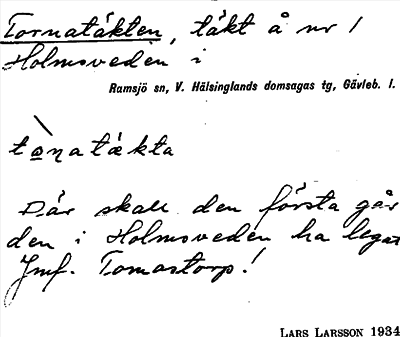 Tornatäkten, täkt å nr 1
Holmsveden i
Ramsjö sn, V. Hälsinglands domsagas tg, Gävleb. l.
tơṇatäkta
Där skall den första går
den i Holmsveden ha legat
Jmf. Tomastorp!
LARS LARSSON 1934